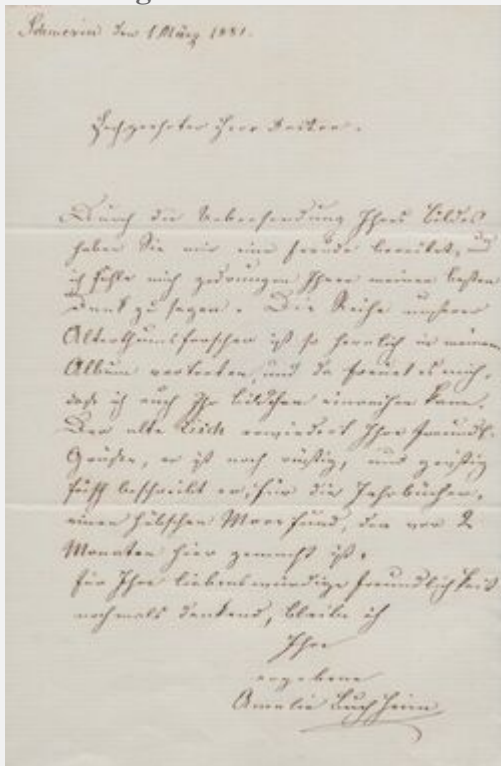 Schwerin den 1 März 1881.
Hochgeehrter Herr Doktor.
Durch die Uebersendung Ihres Bildes
haben Sie mir eine Freude bereitet, und
ich fühle mich gedrungen Ihnen meinen besten
Dank zu sagen. Die Reihe unserer
Alterthumsforscher ist so herrlich in meinem
Album vertreten, und da freuet es mich,
daß ich auch Ihr Bildchen einreihen kann.
Der alte Lisch erwiedert Ihre freundl.
Grüße, er ist noch rüstig, und geistig
frisch beschreibt er, für die Jahrbücher,
einen hübschen Moorfund, der vor 2
Monaten hier gemacht ist.
Für Ihre liebenswürdige Freundlichkeit
nochmals dankend, bleibe ich
Ihre
ergebene
Amalie Buchheim